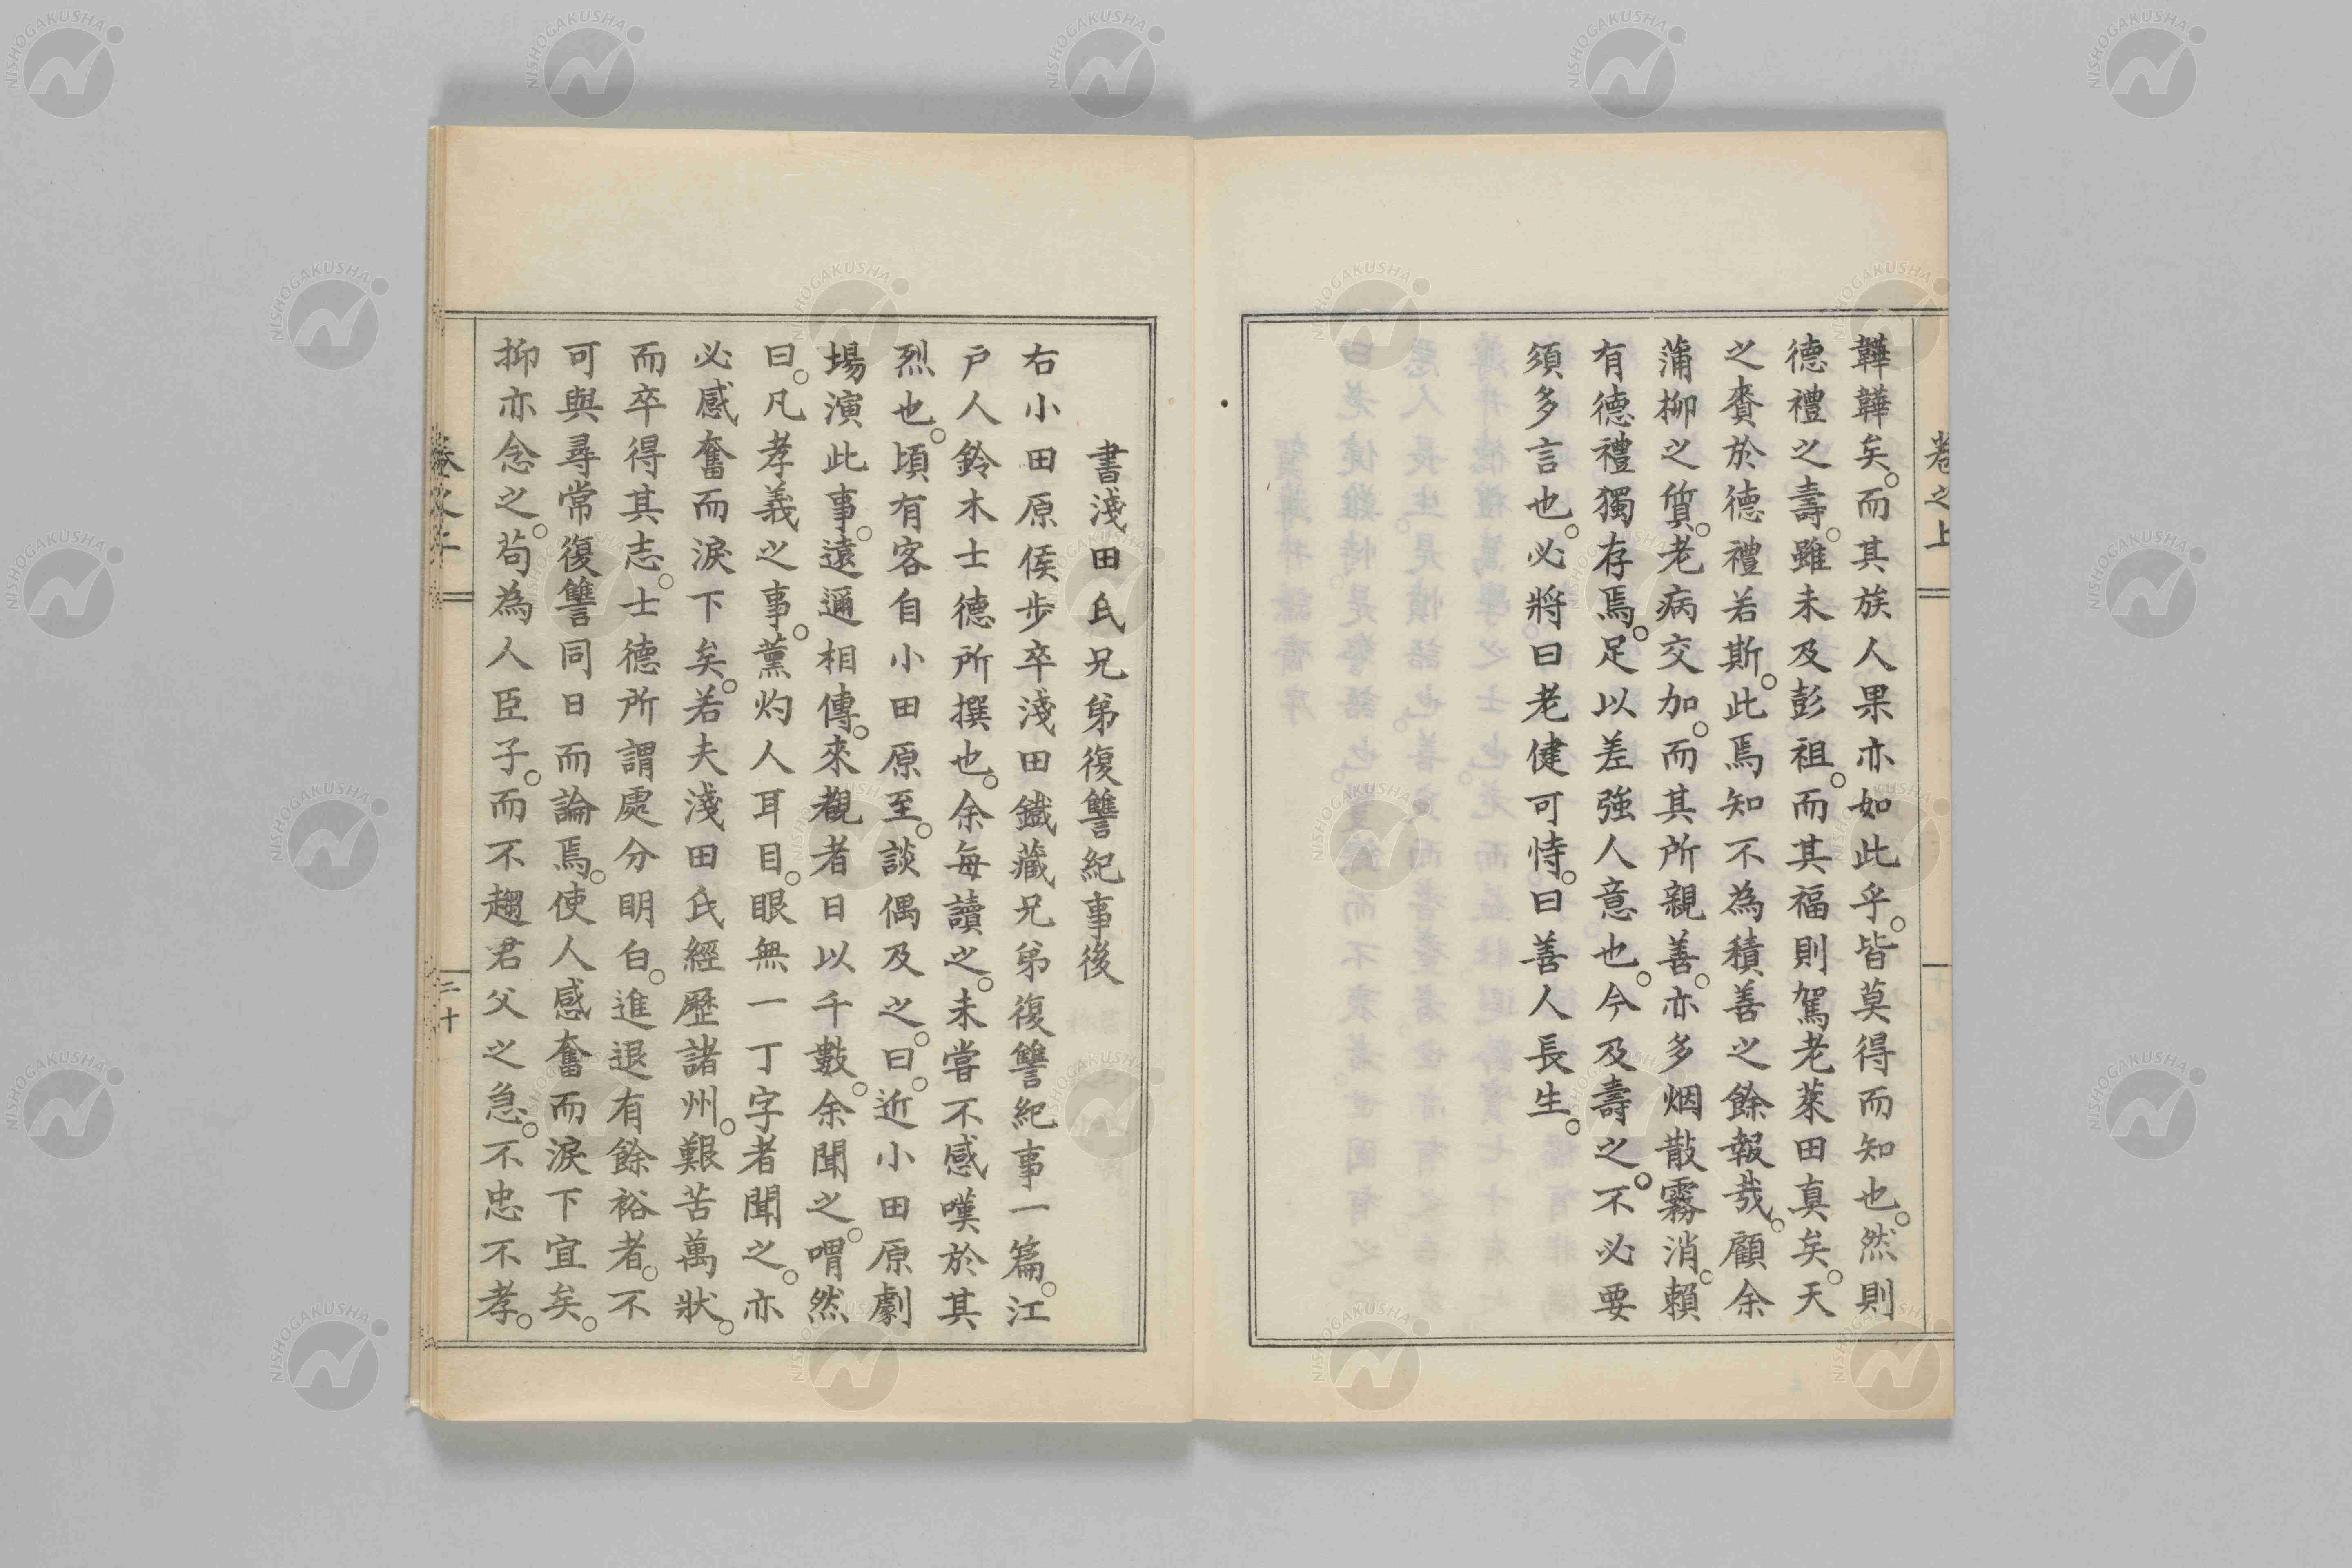 卷之上
韡韡矣。而其族人果亦如此乎。皆莫得而知也。然則
德禮之壽。雖未及彭祖。而其福則駕老萊田真矣。天
之賚於德禮若斯。此焉知不為積善之餘報哉。顧余
蒲柳之質。老病交加。而其所親善。亦多烟散霧消。賴
有德禮獨存焉。足以差強人意也。今及壽之。不必要
須多言也。必將曰老健可恃。曰善人長生。
書淺田氏兄弟復讐紀事後
右小田原侯步卒淺田鐵藏兄弟復讐紀事一篇。江
戶人鈴木士德所撰也。余每讀之。未嘗不感嘆於其
烈也。頃有客自小田原至。談偶及之。曰。近小田原劇
場演此事。遠邇相傳。來觀者日以千數。余聞之。喟然
曰。凡孝義之事。薰灼人耳目。眼無一丁字者聞之。亦
必感奮而淚下矣。若夫淺田氏經歷諸州。艱苦萬狀。
而卒得其志。士德所謂處分明白。進退有餘裕者。不
可與尋常復讐同日而論焉。使人感奮而淚下宜矣。
抑亦念之。苟為人臣子。而不趨君父之急。不忠不孝。
二十
NISHOGAKUSHA